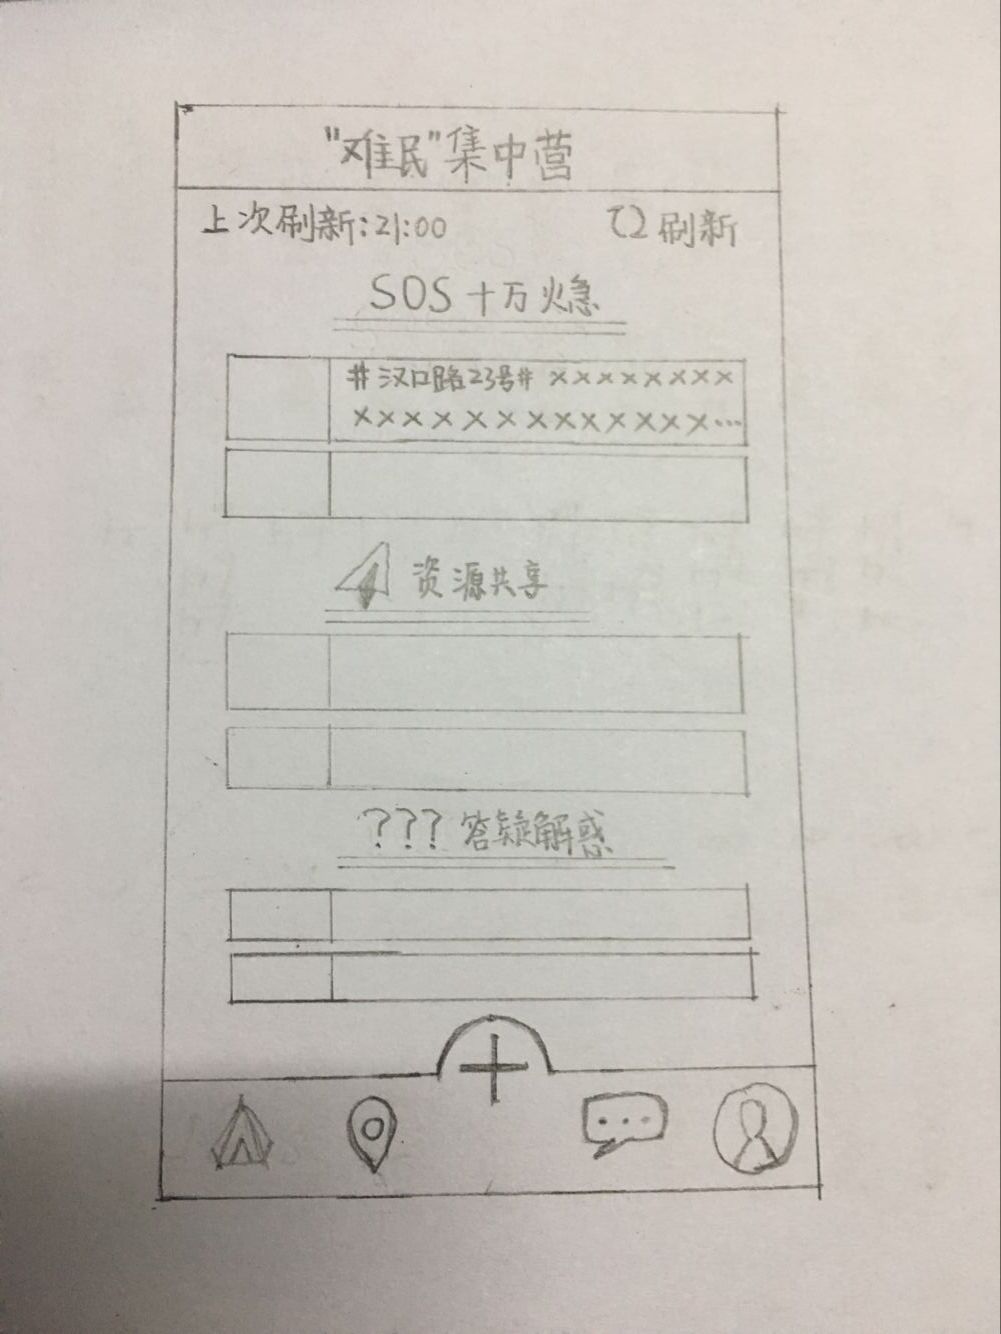 "难民"集中营
上次刷新:21:00 刷新
SOS 十万火急
#汉口路23号# ××××××××
××××××××××××××…
资源共享
??? 答疑解惑